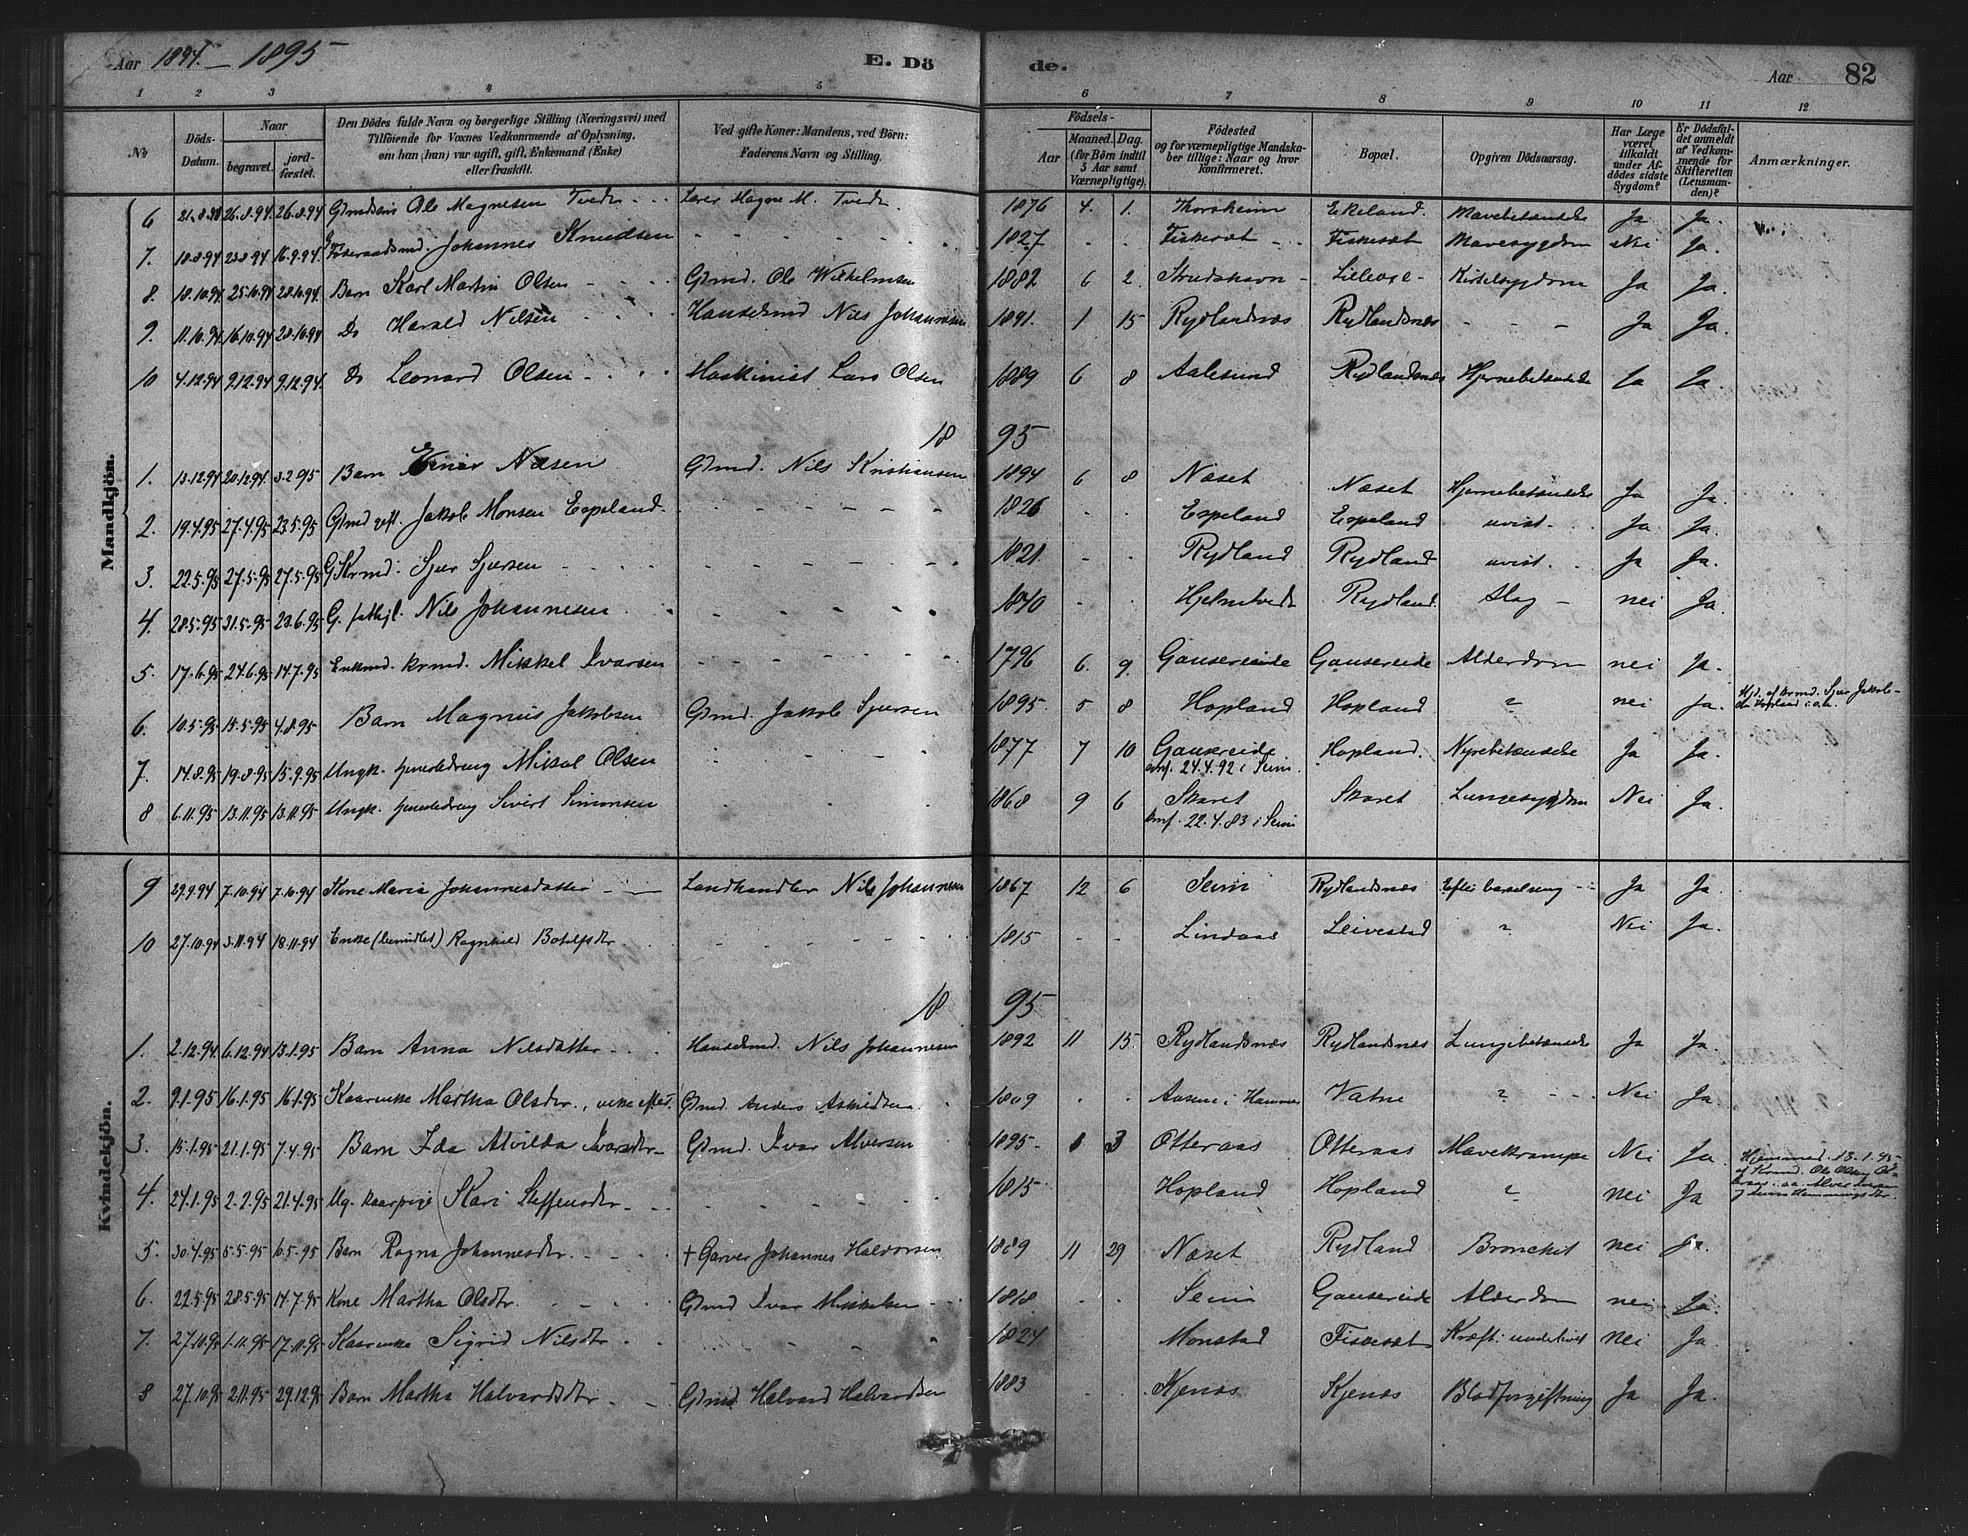 Aar 1894. – 1895
E. Dö
de.
Aar
82
1 2 3 4 5 6 7 8 9 10 11 12
No
Döds-Datum.
Naar
begravet.
jord-fæstet.
Den Dödes fulde Navn og borgerlige Stilling (Næringsvei) med
Tilföiende for Voxnes Vedkommende af Oplysning,
om han (hun) var ugift, gift, Enkemand (Enke)
eller fraskilt.
Ved gifte Koner: Mandens, ved Börn:
Faderens Navn og Stilling.
Födsels-
Aar
Maaned. Dag.
(for Börn indtil
5 Aar samt
Værnepligtige).
Födested
og for værnepligtige Mandska-
ber tillige: Naar og hvor
konfirmeret.
Bopæl.
Opgiven Dödsaarsag.
Har Læge
været
tilkaldt
under Af-
dödes sidste
Sygdom?
Er Dödsfal-
det anmeldt
af Vedkom-
mende for
Skifteretten
(Lensman-
den)?
Anmærkninger.
Mandkjön.
6 21.8.94 26.8.94 26.8.94 Ole Magnesen Tvedt Lærer Magne M. Tvedt 1876 4. 1. Thorsheim Ekeland. Mavebetændelse Ja Ja.
7. 18.8.94 23.8.94 16.9.94 Johannes Knudsen 1827 Fiskesæt Fiskesæt Mavesygdom Nei Ja.
8 18.10.94 25.10.94 28.10.94 Barn Karl Martin Olsen Gbmd. Ole Wilhelmsen 1882 6 2. Strudshavn Lilleoxe Kirtelsygdom Ja Ja.
9. 11.10.94 16.10.94 28.10.94 Do Harald Nilsen Handelsmd Nils Johannesen 1891. 1 15 Rydlandsnæs Rydlandsnæs – – – Ja Ja.
10 4.12.94 9.12.94 9.12.94. Do Leonard Olsen Maskinist Lars Olsen 1889 6 8 Aalesund Rydlandsnæs Hjernebetændelse Ja Ja.
18 95
1. 13.12.94 20.12.94. 3.2.95 Barn Einar Næsen Gbmd. Nils Kristiansen 1894 6 8 Næset Næset Hjernebetændelse Ja Ja.
2. 19.4.95 27.4.95 23.5.95 Gbmd gift. Jakob Monsen Espeland 1826 Espeland Espeland uvist. Ja Ja.
3. 22.5.95 27.5.95 27.5.95 G. Krmd. Sjur Sjursen 1821. Rydland Rydland uvist. Ja Ja.
4. 28.5.95 31.5.95 23.6.95 G. fathjl. Nils Johannesen 1840 Hjelmtvedt Rydland. Slag – nei Ja.
5. 17.6.95 24.6.95 14.7.95 Enkemd. krmd. Mikkel Ivarsen 1796 6. 9. Gausereide Gausereide Alderdom nei Ja.
6. 10.5.95 15.5.95 4.8.95 Barn Magnus Jakobsen Gbmd. Jakob Sjursen 1895. 5 8 Hopland Hopland ? nei Ja. Hjd. af krmd. Sjur Jakob-
sen Hopland
7. 14.8.95 19.8.95 15.9.95 Ungk. tjenestedreng Mikal Olsen 1877 7 10 Gausereide Hopland. Nyrebetændelse Ja Ja.
conf. 24.4.92 i Seim.
8 6.11.95 13.11.95 13.11.95 Ungk. tjenestedreng Sivert Simonsen 1868 9 6 Skaret Skaret Lungesygdom Nei Ja.
conf. 22.4.83 i Seim
Kvindekjön.
9 29.9.94 7.10.94 7.10.94 Kone Maria Johannesdatter Landhandler Nils Johannesen 1867 12 6 Seim Rydlandsnæs Efter barselseng Ja Ja.
10 27.10.94 3.11.94 18.11.94 Enke (bemidlet) Ragnhild Botolfsdtr. 1815 Lindaas Leivestad ? Nei Ja.
18 95
1. 2.12.94. 6.12.94 13.1.95 Barn Anna Nilsdatter Handelsmd. Nils Johannesen 1892 11 15. Rydlandsnæs Rydlandsnæs Lungebetændelse Ja Ja
2. 9.1.95 16.1.95 16.1.95 Kaarenke Martha Olsdtr. Gbmd. Anders 1809 Aasene i Hammer Vatne ? Nei Ja
3. 15.1.95 21.1.95 7.4.95 Barn Ida Alvilda Ivarsdtr. Gbmd. Ivar Alversen 1895. 1 3 Otteraas Otteraas Mavekrampe Nei Ja. Hjemmed. 13.1.95
4. 24.1.95 2.2.95 21.4.95 Ug. kaarpige Kari Steffensdtr. 1815 Hopland Hopland ? nei Ja
5. 30.4.95 5.5.95 6.5.95 Barn Ragna Johannesdtr. + Garver Johannes Halvorsen 1889 11 29 Næset Rydland Bronchit nei Ja.
6. 22.5.95 28.5.95 14.7.95 Kone Martha Olsdtr. Gbmd Ivar Mikkelsen 1818 Seim Gausereide Alderdom nei Ja.
7. 27.10.95 1.11.95 17.11.95 Kaarenke Sigrid Nilsdtr. 1824 Monstad Fiskesæt Kræft i underlivet nei Ja
8 27.10.95 2.11.95 29.12.95 Barn Martha Halvardsdtr. Gbmd. Halvard Halvardsen 1883 Kjenes Kjenes Blodforgiftning Ja Ja.